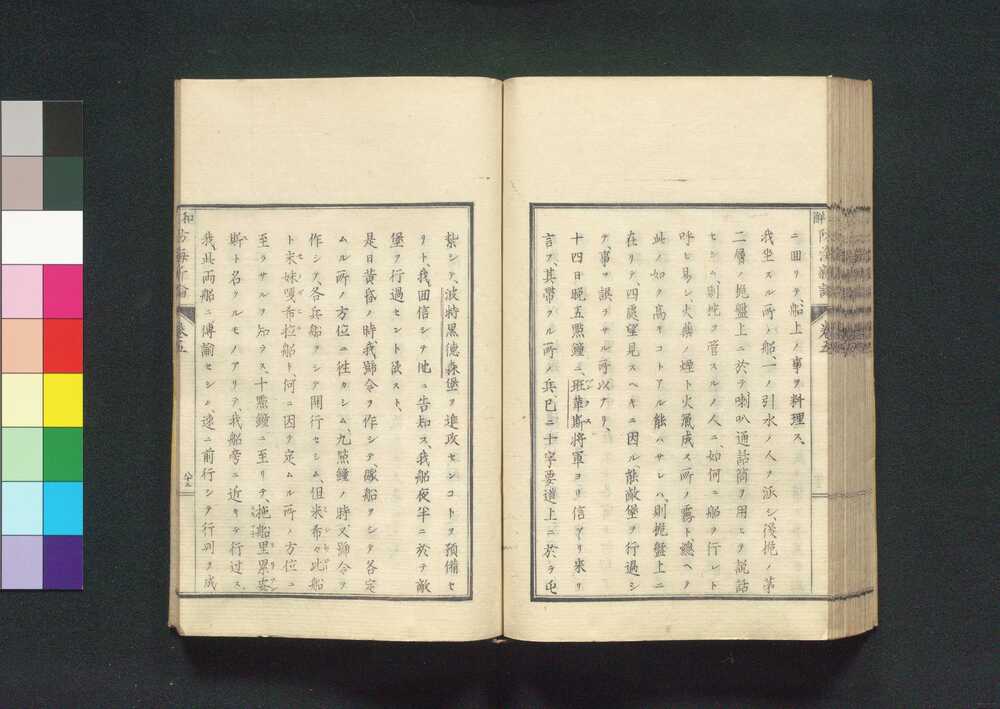 ニ回リテ、船上ノ事ヲ料理ス、
我坐スル所ノ船、一ノ引水ノ人ヲ派シ、後桅ノ第
二層ノ桅盤上ニ於テ喇叭通話筒ヲ用ヒテ説話
セシム、則桅ヲ管スルノ人ニ、如何ニ船ヲ行レト
呼ヒ易シ、火薬ノ煙ト火氣成ス所ノ霧ト總ヘテ
此ノ如ク高キコトアル能ハサレハ、則桅盤上ニ
在リテ、四處望見スヘキニ因ル、能敵堡ヲ行過シ
テ、事ヲ誤ラサル所以ナリ、
十四日晩五點鐘ニ、班革斯将軍ヨリ信アリ来リ
言フ、其帯フル所ノ兵、已ニ十字要道上ニ於テ屯
紮シテ、波特黒徳森堡ヲ進攻センコトヲ預備セ
リト、我回信シテ他ニ告知ス、我船夜半ニ於テ敵
堡ヲ行過セント欲スト、
是日黄昏ノ時、我號令ヲ作シテ、礮船ヲシテ各定
ムル所ノ方位ニ往カシム、九點鐘ノ時、又號令ヲ
作シテ、各兵船ヲシテ開行セシム、但米希々比船
ト来妹唄布拉船ト、何ニ因テ定ムル所ノ方位ニ
至ラサルヲ知ラス、十點鐘ニ至リテ、拖船里累安
斯ト名クルモノアリテ、我船旁ニ近キテ行过ス、
我、此両船ニ傳諭セシム、速ニ前行シテ行列ヲ成
解
卷五
和
卷五